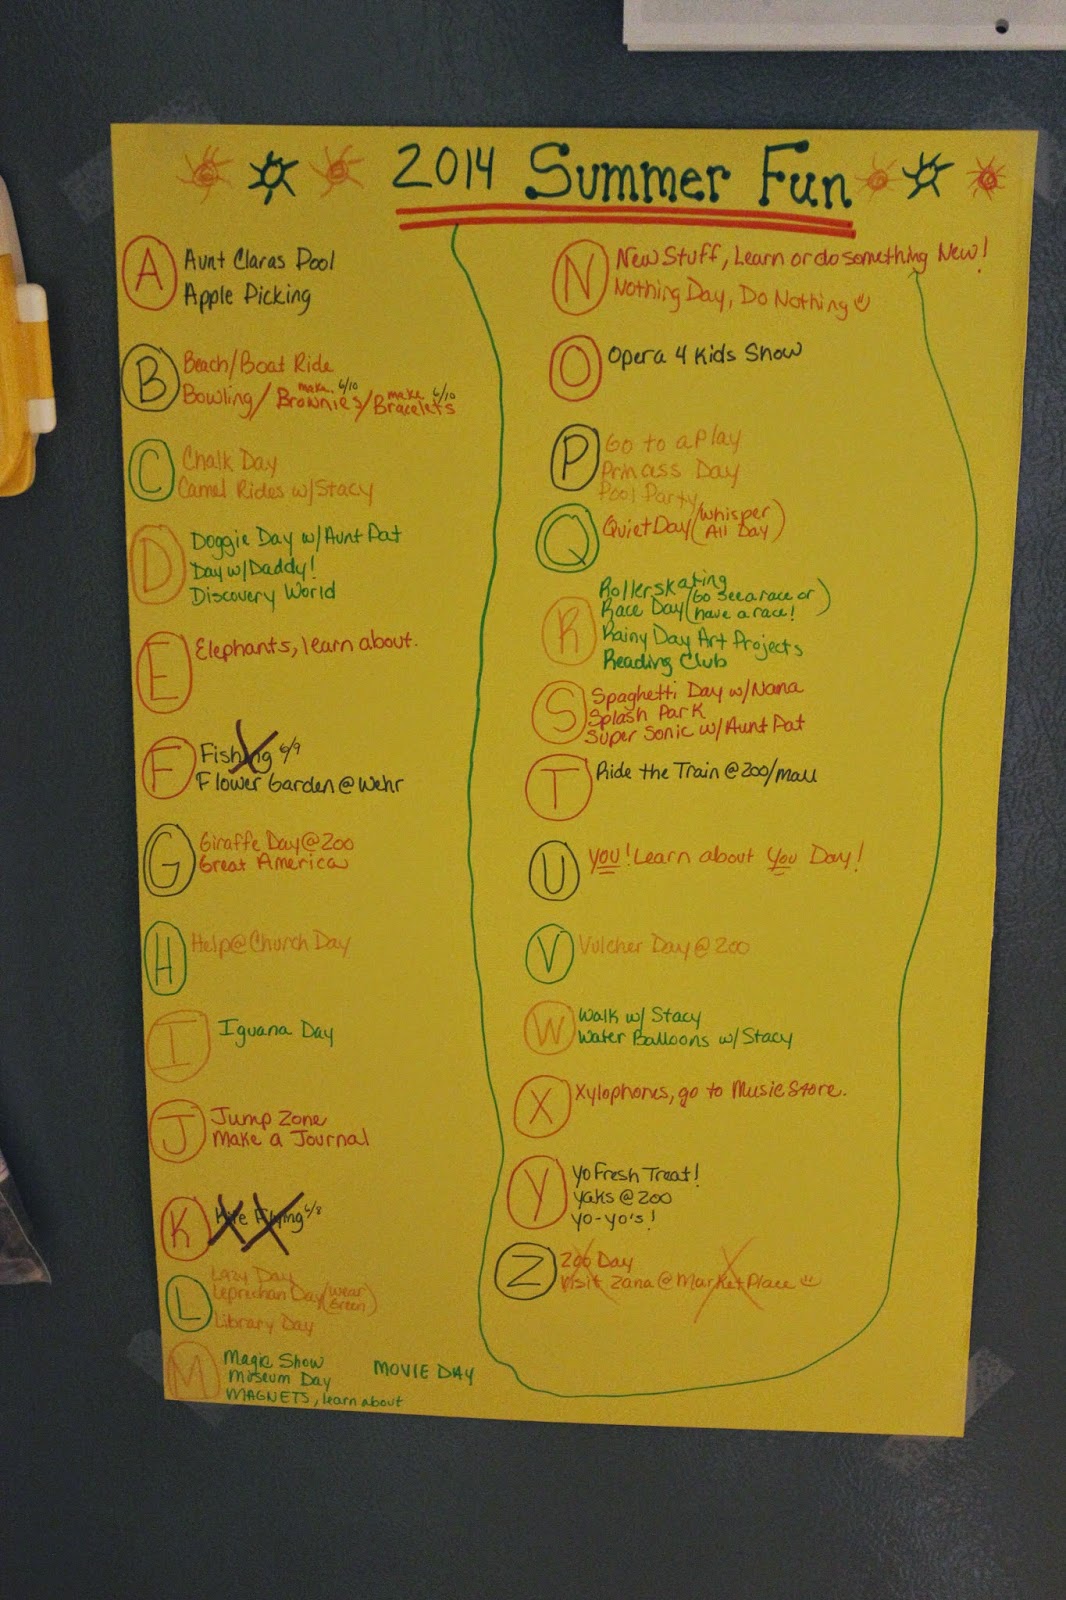 2014 Summer Fun
A
Aunt Claras Pool
Apple Picking
B
Beach/Boat Ride
Bowling/ make Brownies 6/10 / make Bracelets 6/10
C
Chalk Day
Camel Rides w/Stacy
D
Doggie Day w/Aunt Pat
Day w/Daddy!
Discovery World
E
Elephants, learn about.
F
Fishing 6/9
Flower Garden @ Wehr
G
Giraffe Day @ Zoo
Great America
H
Help @ Church Day
I
Iguana Day
J
Jump Zone
Make a Journal
K
Kite Flying 6/8
L
Lazy Day
Leprechan Day (wear Green)
Library Day
M
Magic Show
MOVIE DAY
Museum Day
MAGNETS, learn about
N
New Stuff, Learn or do something New!
Nothing Day, Do Nothing
O
Opera 4 Kids Show
P
Go to a Play
Princess Day
Pool Party
Q
Quiet Day (whisper All Day)
R
Rollerskating
Race Day (Go see a race or have a race!)
Rainy Day Art Projects
Reading Club
S
Spaghetti Day w/Nana
Splash Park
Super Sonic w/Aunt Pat
T
Ride the Train @ Zoo/mall
U
YOU! Learn about You Day!
V
Vulcher Day @ Zoo
W
Walk w/ Stacy
Water Balloons w/ Stacy
X
Xylophones, go to Music Store.
Y
Yo Fresh Treat!
Yaks @ Zoo
Yo-Yo's!
Z
Zoo Day
Visit Zana @ Market Place